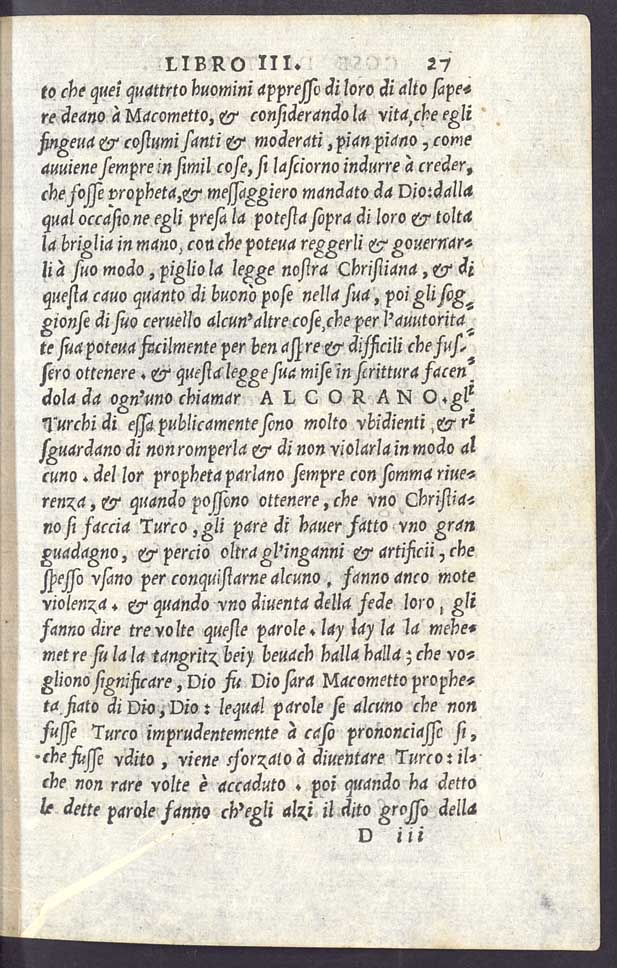 LIBRO III. 27
to che quei quattrto huomini appresso di loro di alto sape-
re deano à Macometto, & considerando la vita, che egli
fingeua & costumi santi & moderati, pian piano, come
auuiene sempre in simil cose, si lasciorno indurre à creder,
che fosse propheta, & messaggiero mandato da Dio: dalla
qual occasione egli presa la potesta sopra di loro & tolta
la briglia in mano, con che poteua reggerli & gouernar-
li à suo modo, piglio la legge nostra Christiana, & di
questa cauo quanto di buono pose nella sua, poi gli sog-
gionse di suo ceruello alcun'altre cose, che per l'auutorita-
te sua poteua facilmente per ben aspre & difficili che fus-
sero ottenere. & questa legge sua mise in scrittura facen-
dola da ogn'uno chiamar ALCORANO. gli
Turchi di essa publicamente sono molto vbidienti, & ri
sguardano di non romperla & di non violarla in modo al
cuno. del lor propheta parlano sempre con somma riue-
renza, & quando possono ottenere, che vno Christia-
no si faccia Turco, gli pare di hauer fatto vno gran
guadagno, & percio oltra gl'inganni & artificii, che
spesso vsano per conquistarne alcuno, fanno anco mote
violenza. & quando vno diuenta della fede loro, gli
fanno dire tre volte queste parole. lay lay la la mehe-
met re su la la tangritz beiy beuach halla halla; che vo-
gliono significare, Dio fu Dio sara Macometto prophe-
ta fiato di Dio, Dio: lequal parole se alcuno che non
fusse Turco imprudentemente à caso prononciasse si,
che fusse vdito, viene sforzato à diuentare Turco: il-
che non rare volte è accaduto. poi quando ha detto
le dette parole fanno ch'egli alzi il dito grosso della
D iii